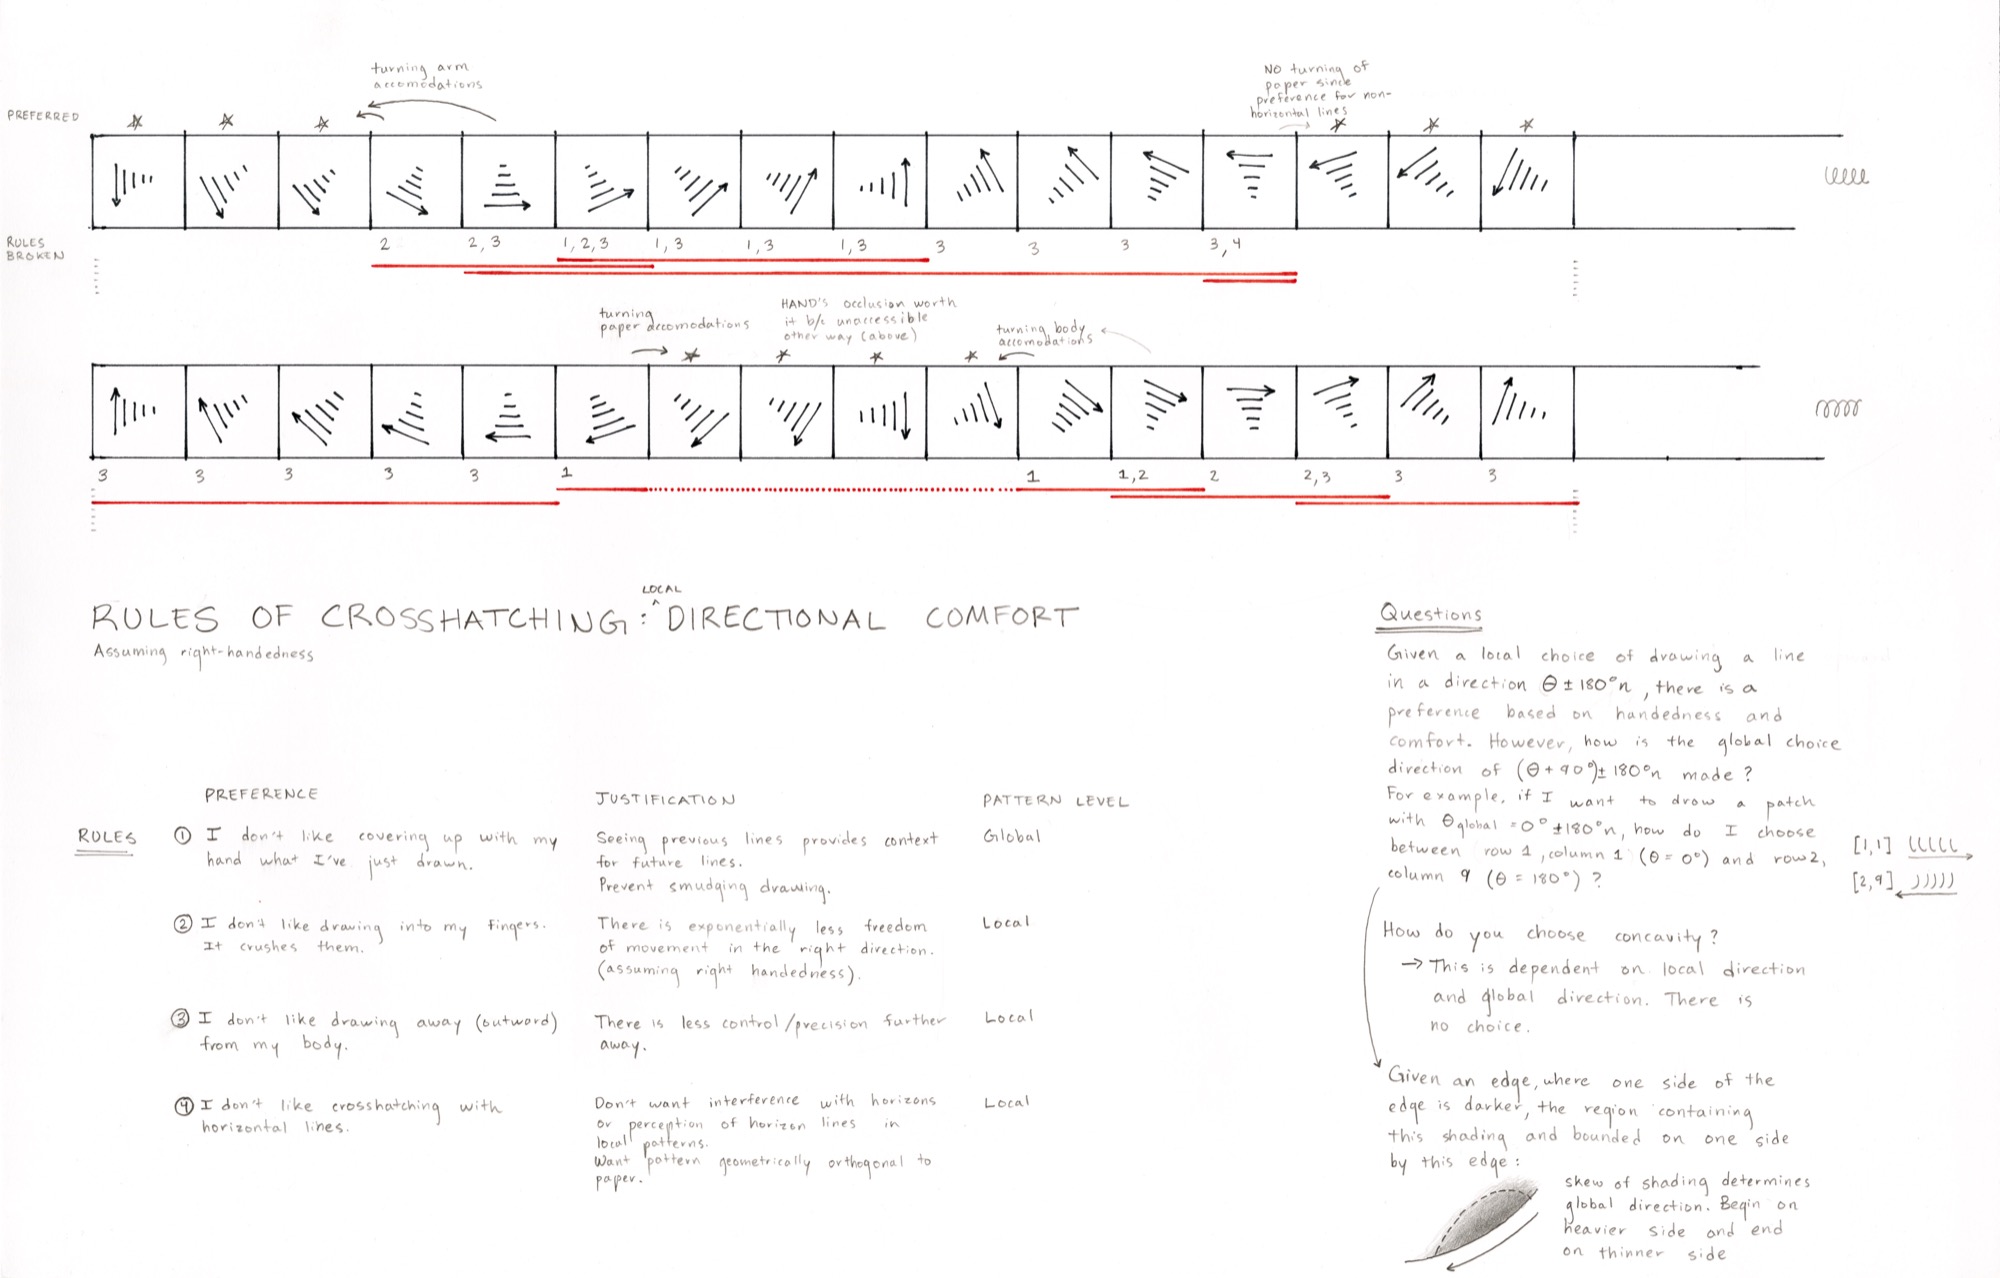 turning arm
accomodations
NO turning of
paper since
preference for non-
horizontal lines
PREFERRED
RULES
BROKEN
2
2, 3
1, 2, 3
1, 3
1, 3
1, 3
3
3
3
3, 4
turning
paper accomodations
HAND'S occlusion worth
it b/c unaccessible
other way (above)
turning body
accomodations
3
3
3
3
3
1
1
1, 2
2
2, 3
3
3
RULES OF CROSSHATCHING: ^LOCAL DIRECTIONAL COMFORT
Assuming right-handedness
PREFERENCE
JUSTIFICATION
PATTERN LEVEL
RULES
① I don't like covering up with my
hand what I've just drawn.
Seeing previous lines provides context
for future lines.
Prevent smudging drawing.
Global
② I don't like drawing into my fingers.
It crushes them.
There is exponentially less freedom
of movement in the right direction.
(assuming right handedness).
Local
③ I don't like drawing away (outward)
from my body.
There is less control/precision further
away.
Local
④ I don't like crosshatching with
horizontal lines.
Don't want interference with horizons
or perception of horizon lines in
local patterns.
Want pattern geometrically orthogonal to
paper.
Local
Questions
Given a local choice of drawing a line
in a direction θ ± 180°n, there is a
preference based on handedness and
comfort. However, how is the global choice
direction of (θ + 90°) ± 180°n made?
For example, if I want to draw a patch
with θglobal = 0° ± 180°n, how do I choose
between row 1, column 1 (θ = 0°) and row 2,
column 9 (θ = 180°)?
[1,1]
[2,9]
How do you choose concavity?
→ This is dependent on local direction
and global direction. There is
no choice.
Given an edge, where one side of the
edge is darker, the region containing
this shading and bounded on one side
by this edge:
skew of shading determines
global direction. Begin on
heavier side and end
on thinner side